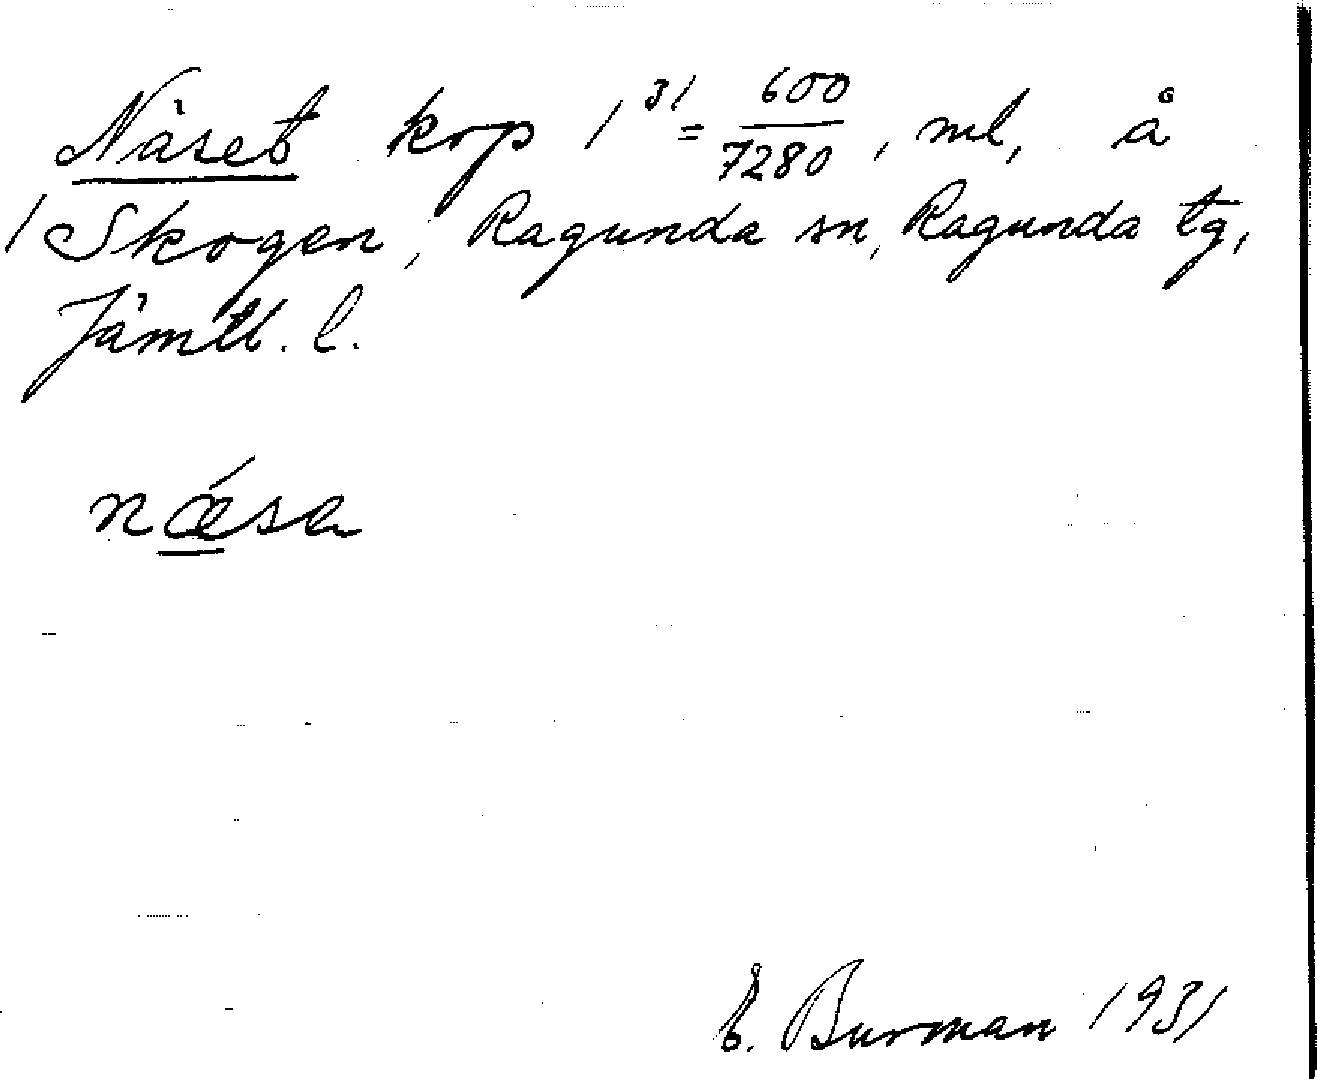 Näset krp 1³¹ = 600/7280, ml, å
1 Skogen, Ragunda sn, Ragunda tg,
Jämtl. l.
nǽsa
E. Burman 1931